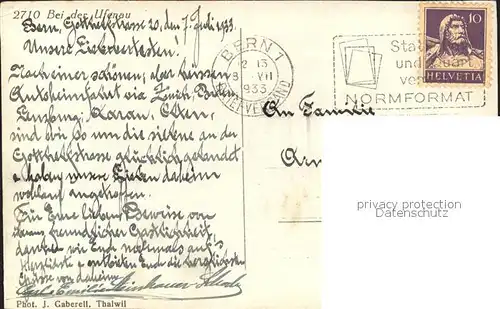 2710 Bei der Ufenau
Bern, Gotthelfstrasse 20, den 7. Juli 1933.
Unsere Liebwertesten!
Nach einer schönen, aber heissen
Autoheimfahrt via Zürich,
Lenzburg, Aarau, Olten,
sind wir so um die sieben an der
Gotthelfstrasse glücklich gelandet
& haben unsere Lieben daheim
wohlauf angetroffen.
Für Eure lieben Beweise von
freundlicher Gastlichkeit,
danken wir Euch nochmals auf's
Herzlichste & entbieten Euch die herzlichsten
Grüsse von daheim
Phot. J. Gaberell, Thalwil
BERN 1
1933
BRIEFVERSAND
und
NORMFORMAT
10
HELVETIA
An Familie
privacy protection
Datenschutz